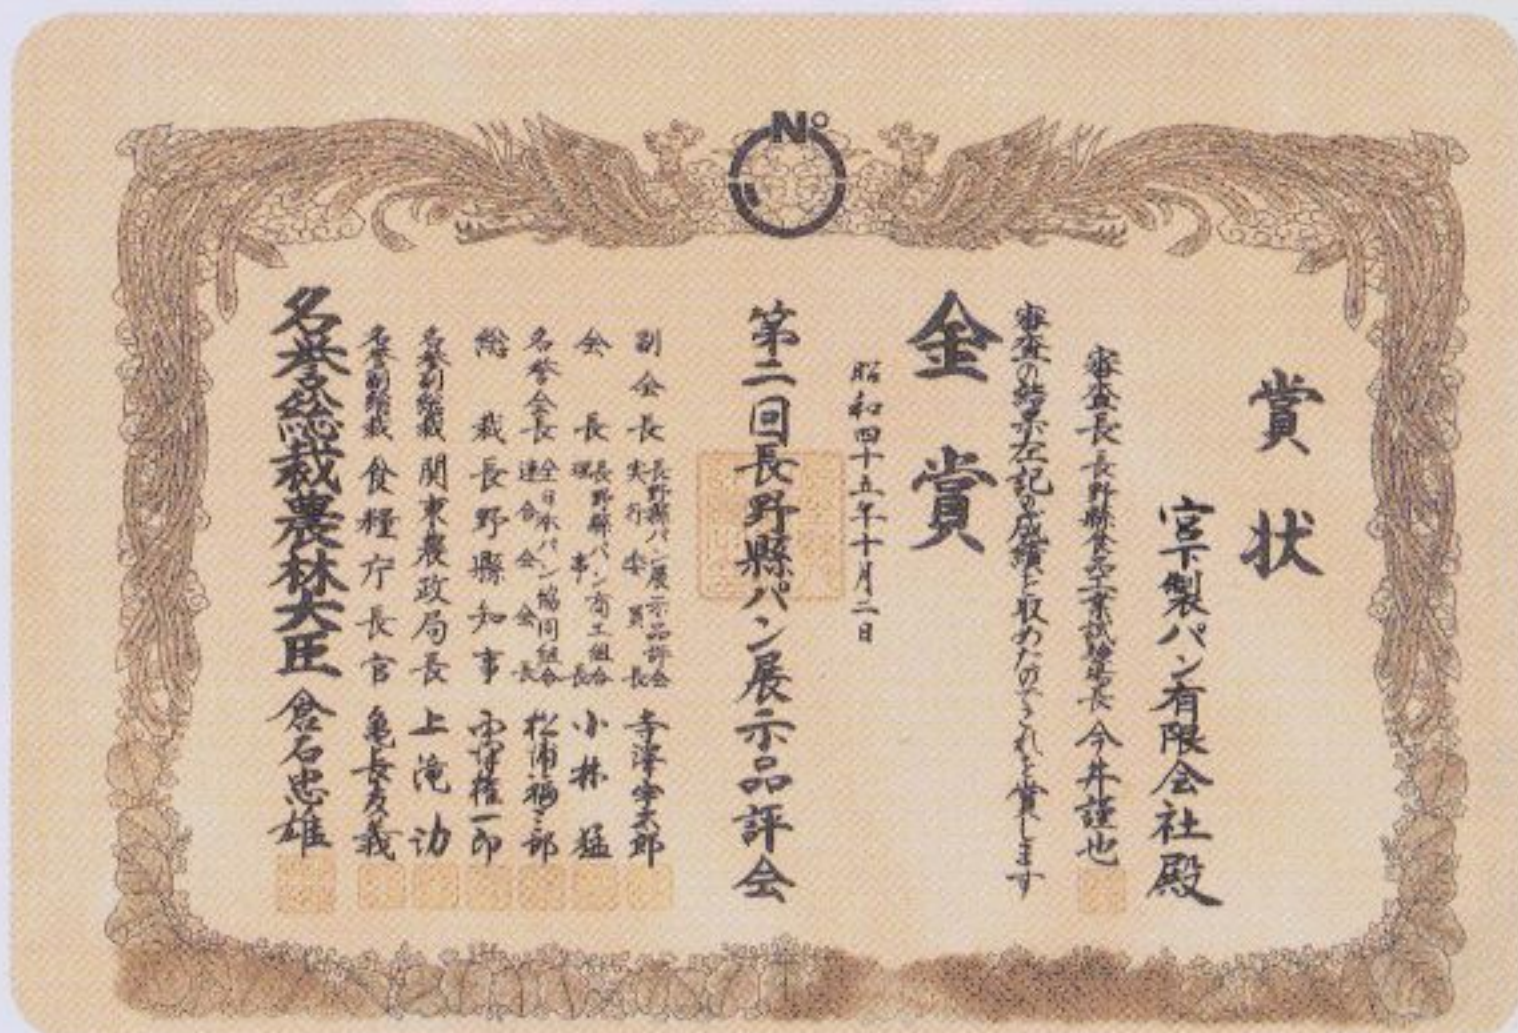 N°
賞状
宮下製パン有限会社殿
審査長 長野縣食品工業試験場長 今井謹也
審査の結果左記の成績を収めたのでこれを賞します
金賞
昭和四十五年十月二日
第二回長野縣パン展示品評会
副会長 長野縣パン展示品評会実行委員長
会長 長野縣パン商工組合理事長 小林猛
名誉会長 全日本パン協同組合連合会会長
総裁 長野縣知事
名誉副総裁 関東農政局長
名誉副総裁 食糧庁長官 亀長友義
名誉総裁農林大臣 倉石忠雄